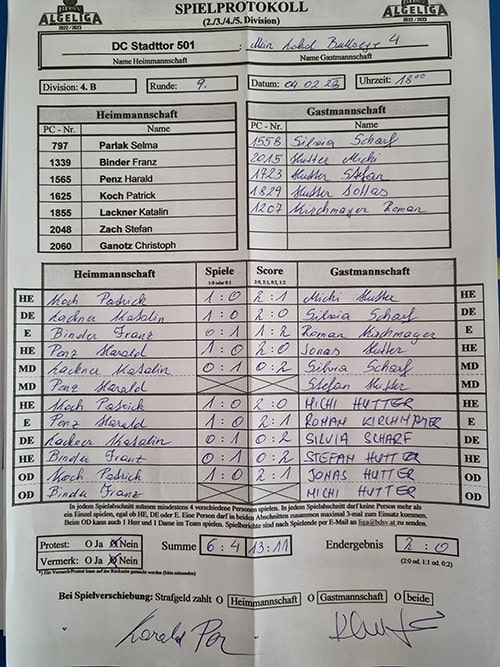 BDSV ALGELIGA 2022 / 2023 SPIELPROTOKOLL ALGELIGA 2022 / 2023
(2./3./4./S. Division)
DC Stadttor 501 : 4
Name Heimmannschaft Name Gastmannschaft
Division: 4. B Runde: 9. Datum: 04.02.23 Uhrzeit: 18⁰⁰
Heimmannschaft Gastmannschaft
PC - Nr. Name PC - Nr. Name
797 Parlak Selma 1558 Silvia Scharf
1339 Binder Franz 2015 Hutter Michi
1565 Penz Harald 1723 Hutter Stefan
1625 Koch Patrick 1829 Hutter
1855 Lackner Katalin 1207 Kirchmayer Roman
2048 Zach Stefan
2060 Ganotz Christoph
Heimmannschaft Spiele Score Gastmannschaft
1:0 oder 0:1 2:0, 2:1, 0:2, 1:2
HE Koch Patrick 1 : 0 2 : 1 Michi Hutter HE
DE Lackner Katalin 1 : 0 2 : 0 Silvia Scharf DE
E Binder Franz 0 : 1 1 : 2 Roman Kirchmayer E
HE Penz Harald 1 : 0 2 : 0 Jonas Hutter HE
MD Lackner Katalin 0 : 1 0 : 2 Silvia Scharf MD
MD Penz Harald Stefan Hutter MD
HE Koch Patrick 1 : 0 2 : 0 MICHI HUTTER HE
E Penz Harald 1 : 0 2 : 1 ROMAN KIRCHMAYER E
DE Lackner Katalin 0 : 1 0 : 2 SILVIA SCHARF DE
HE Binder Franz 0 : 1 0 : 2 STEFAN HUTTER HE
OD Koch Patrick 1 : 0 2 : 1 JONAS HUTTER OD
OD Binder Franz MICHI HUTTER OD
In jedem Spielabschnitt müssen mindestens 4 verschiedene Personen spielen. In jedem Spielabschnitt darf keine Person mehr als
ein Einzel spielen, egal ob HE, DE oder E. Eine Person darf in beiden Abschnitten zusammen maximal 3-mal zum Einsatz kommen.
Beim OD kann auch 1 Herr und 1 Dame im Team spielen. Spielberichte sind nach Spielende per E-Mail an liga@bdsv.at zu senden.
Protest: O Ja O Nein Summe 6 : 4 13 : 11 Endergebnis 2 : 0
Vermerk: O Ja O Nein (2:0 od. 1:1 od. 0:2)
*) Ein Vermerk/Protest kann auf der Rückseite gemacht werden (bitte ankreuzen)
Bei Spielverschiebung: Strafgeld zahlt O Heimmannschaft O Gastmannschaft O beide